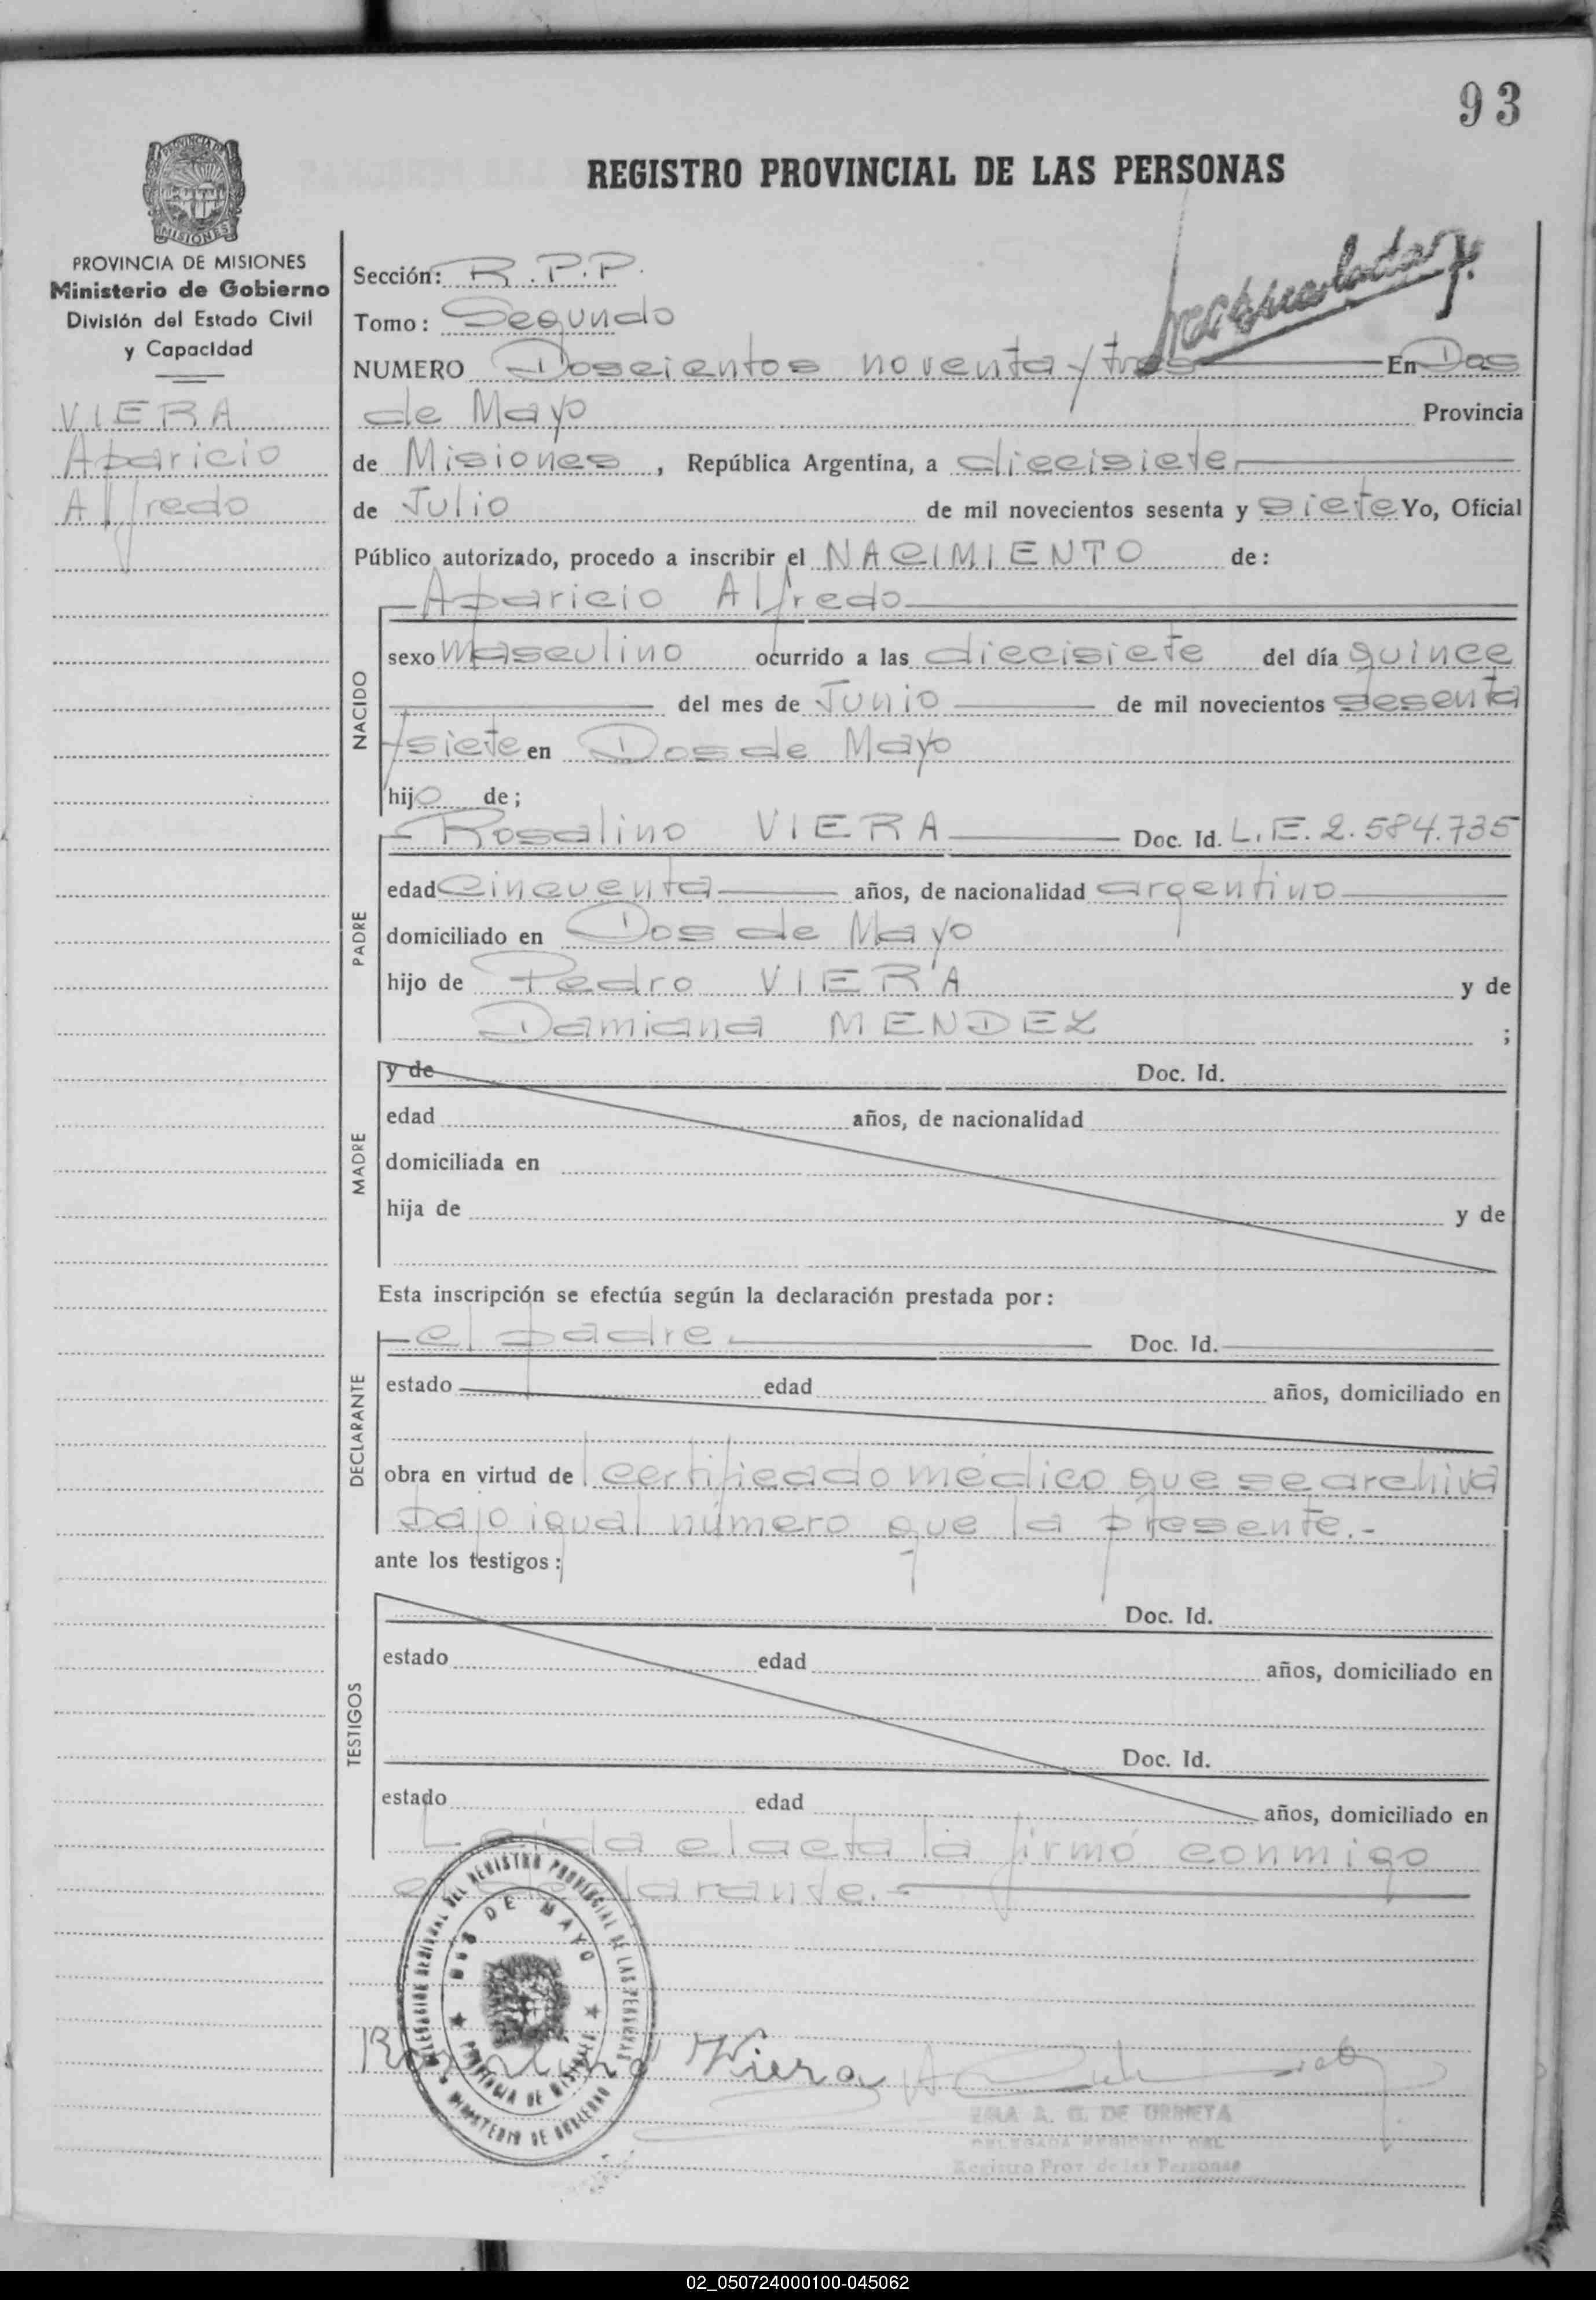 93
REGISTRO PROVINCIAL DE LAS PERSONAS
PROVINCIA DE MISIONES
Ministerio de Gobierno
División del Estado Civil
y Capacidad
VIERA
Aparicio
Alfredo
Sección: R.P.P.
Tomo: Segundo
NUMERO Doscientos noventa y tres En Dos
de Mayo Provincia
de Misiones, República Argentina, a diecisiete
de Julio de mil novecientos sesenta y siete Yo, Oficial
Público autorizado, procedo a inscribir el NACIMIENTO de:
NACIDO
Aparicio Alfredo
sexo masculino ocurrido a las diecisiete del día quince
del mes de Junio de mil novecientos sesenta
y siete en Dos de Mayo
hijo de;
PADRE
Rosalino VIERA Doc. Id. L.E. 2.584.735
edad cincuenta años, de nacionalidad argentino
domiciliado en Dos de Mayo
hijo de Pedro VIERA y de
Damiana MENDEZ ;
MADRE
y de Doc. Id.
edad años, de nacionalidad
domiciliada en
hija de y de
Esta inscripción se efectúa según la declaración prestada por:
DECLARANTE
el padre Doc. Id.
estado edad años, domiciliado en
obra en virtud de certificado médico que se archiva
bajo igual número que la presente.-
ante los testigos:
TESTIGOS
Doc. Id.
estado edad años, domiciliado en
Doc. Id.
estado edad años, domiciliado en
Leída el acta la firmó conmigo
el declarante.-
DELEGACION REGIONAL DEL REGISTRO PROVINCIAL DE LAS PERSONAS
DOS DE MAYO
PROVINCIA DE MISIONES
MINISTERIO DE GOBIERNO
Rosalino Viera
A. G. DE URRIETA
DELEGADA REGIONAL DEL
Registro Prov. de las Personas
02_050724000100-045062